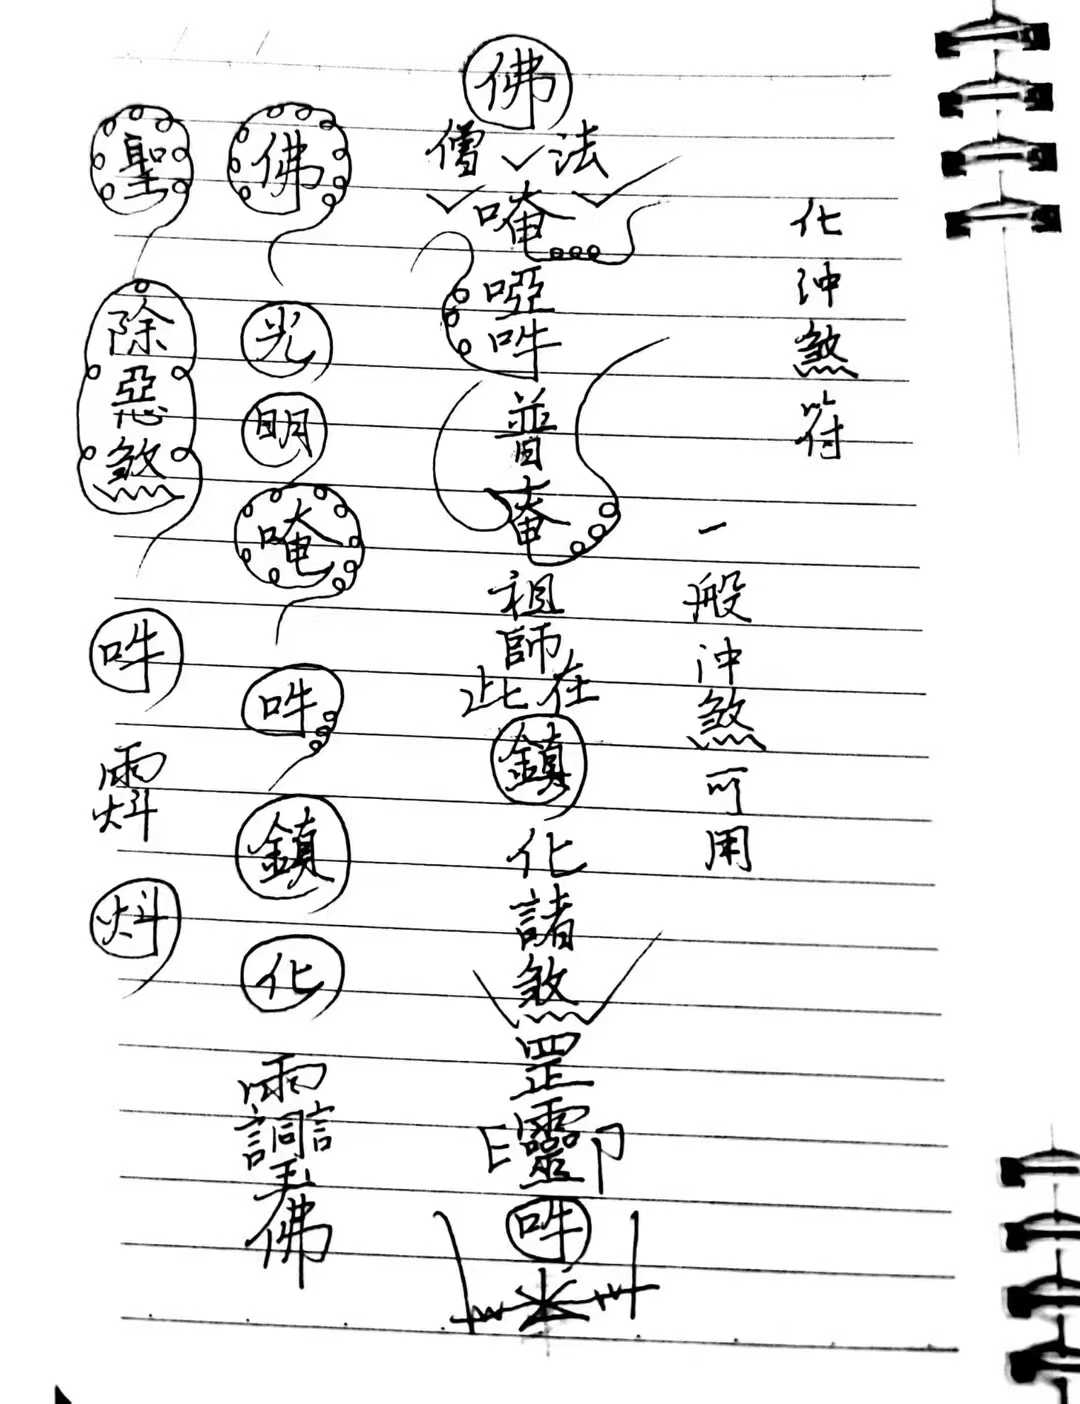 化沖煞符
一般沖煞可用
佛
僧法
唵
啞吽
普
唵
祖師在此
鎮
化諸煞罡
印靈
吽
佛
光
明
唵
吽
鎮
化
佛
聖
除惡煞
吽